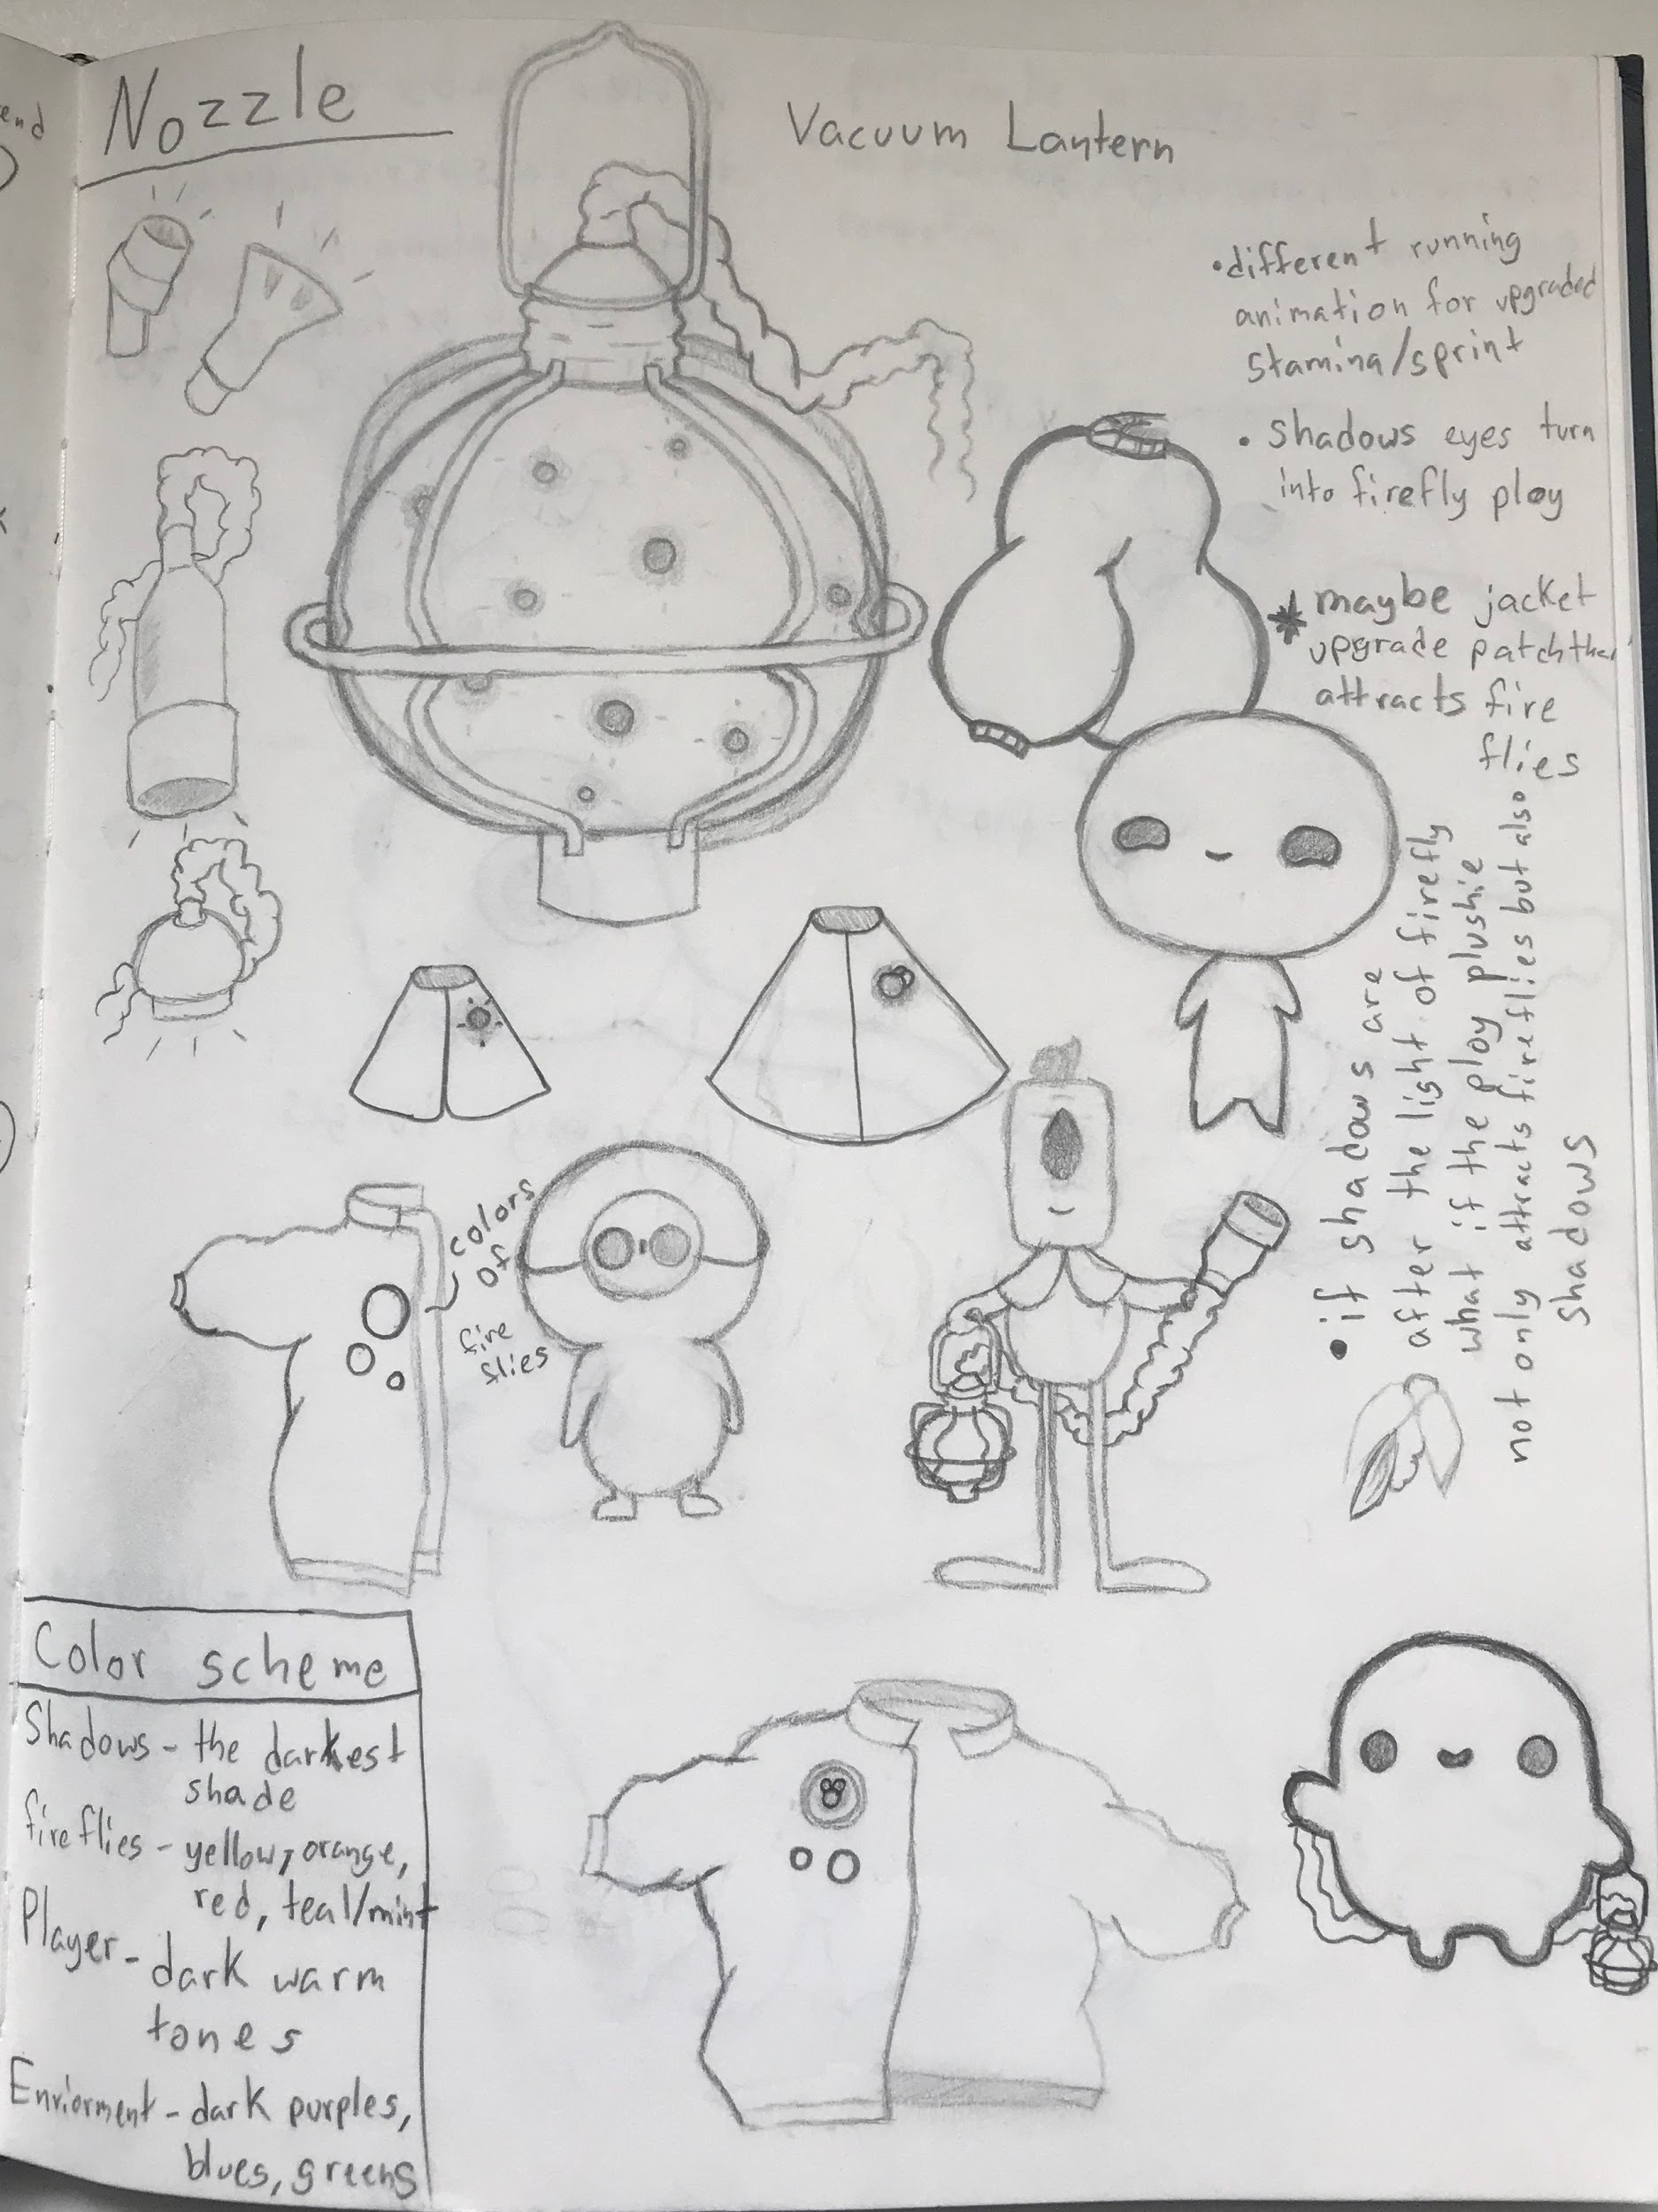 end
Nozzle
Vacuum Lantern
• different running
animation for upgraded
stamina/sprint
• shadows eyes turn
into firefly ploy
* maybe jacket
upgrade patch that
attracts fire
flies
• if shadows are
after the light of firefly
what if the ploy plushie
not only attracts fireflies but also
shadows
colors
of
fire
flies
Color scheme
Shadows - the darkest
shade
fireflies - yellow, orange,
red, teal/mint
Player - dark warm
tones
Enviorment - dark purples,
blues, greens